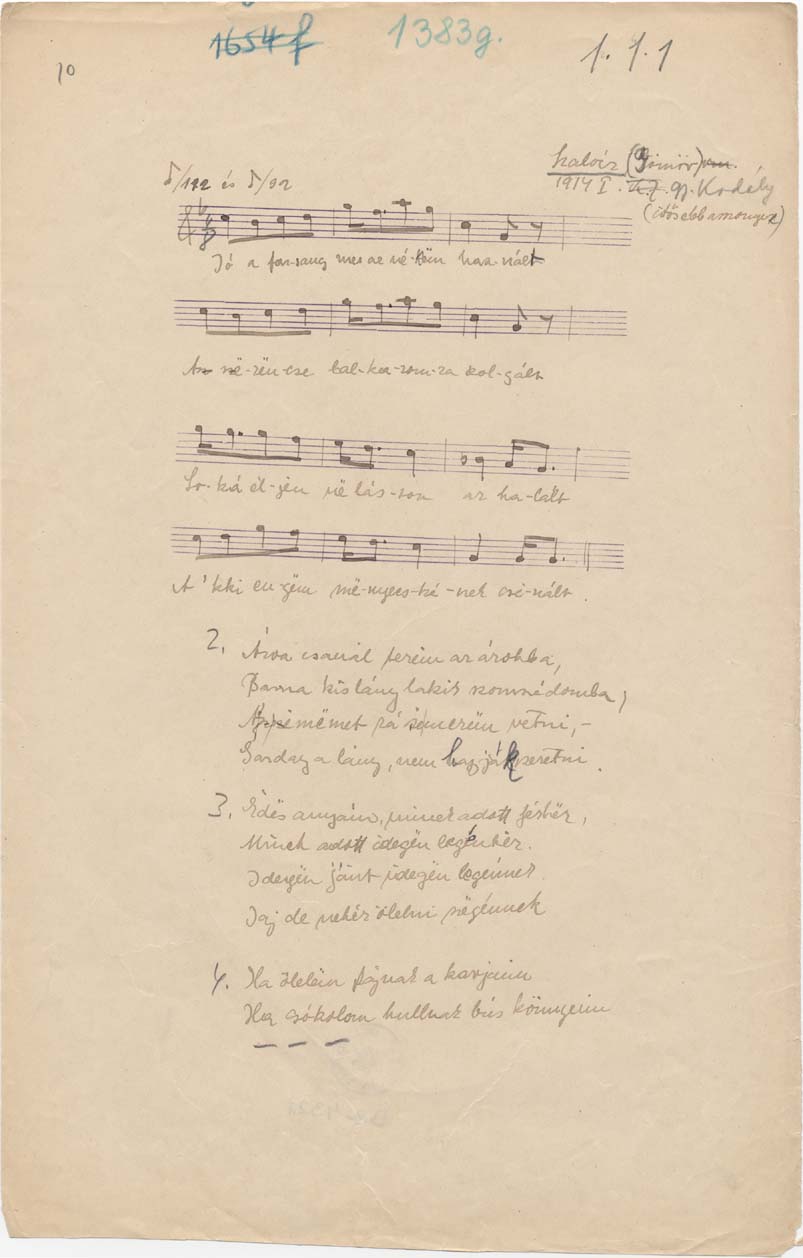 1654 f 1383g.
1. 1. 1
10
Kalvíz (Gömör) vm.
♪/192 és ♪/92
1914 I. gy. Kodály
(idősebb asszonyız)
Jó a far-sang mer az né-këm hasz-nált
A sz në-rën-cse bal-ka-rom-ra szol-gált
So-ká él-jën në lás-son az ha-lált
A 'kki en-gëm më-nyecs-ké-nek csi-nált.
2. Árva csanál terëm az árokba,
Barna kislány lakik szomszédomba,
szëmëmet rá së merëm vetni, –
Gazdag a lány, nem hagyják szeretni.
3. Édës anyám, minek adott férhëz,
Minek adott idegën legénhëz.
Idegën jánt idegën legénnek
Jaj de nehéz ölelni szëgénnek
4. Ha ölelëm fájnak a karjaim
Ha csókolom hullnak bús könnyeim
— — —